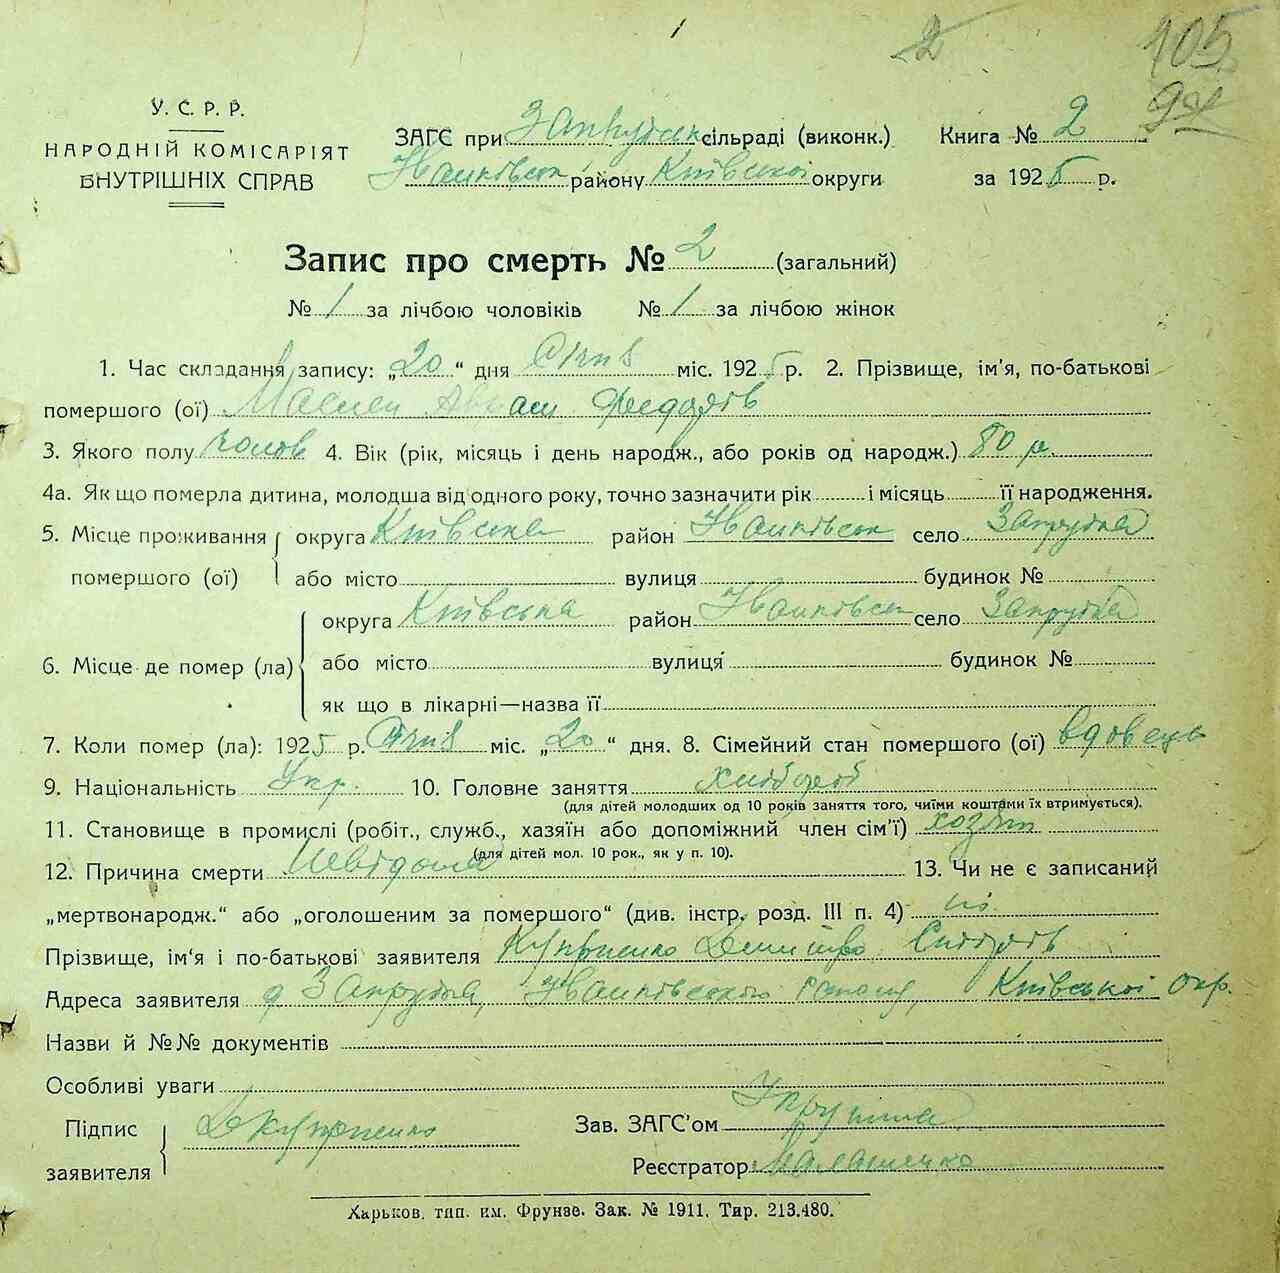 105
2
94
У. С. Р. Р.
НАРОДНІЙ КОМІСАРІЯТ
ВНУТРІШНІХ СПРАВ
ЗАГС при Запрудськ сільраді (виконк.) Книга № 2
Іванківськ району Київської округи за 1925 р.
Запис про смерть № 2 (загальний)
№ 1 за лічбою чоловіків № 1 за лічбою жінок
1. Час складання запису: „20“ дня Січня міс. 1925 р. 2. Прізвище, ім'я, по-батькові
помершого (ої)
3. Якого полу чолов 4. Вік (рік, місяць і день народж., або років од народж.) 80 р.
4а. Як що померла дитина, молодша від одного року, точно зазначити рік і місяць її народження.
5. Місце проживання помершого (ої) округа Київська район Іванківськ село Запрудка
або місто вулиця будинок №
6. Місце де помер (ла) округа Київська район Іванківськ село Запрудка
або місто вулиця будинок №
як що в лікарні—назва її
7. Коли помер (ла): 1925 р. Січня міс. „20“ дня. 8. Сімейний стан помершого (ої) вдовець
9. Національність Укр. 10. Головне заняття хлібороб
(для дітей молодших од 10 років заняття того, чиїми коштами їх втримується).
11. Становище в промислі (робіт., служб., хазяїн або допоміжний член сім'ї)
(для дітей мол. 10 рок., як у п. 10).
12. Причина смерти Невідома 13. Чи не є записаний
„мертвонародж.“ або „оголошеним за помершого“ (див. інстр. розд. III п. 4) ні
Прізвище, ім'я і по-батькові заявителя
Адреса заявителя Запрудка, Іванківського району, Київської окр.
Назви й №№ документів
Особливі уваги
Підпис заявителя
Зав. ЗАГС'ом
Реєстратор:
Харьков. тип. им. Фрунзе. Зак. № 1911. Тир. 213.480.